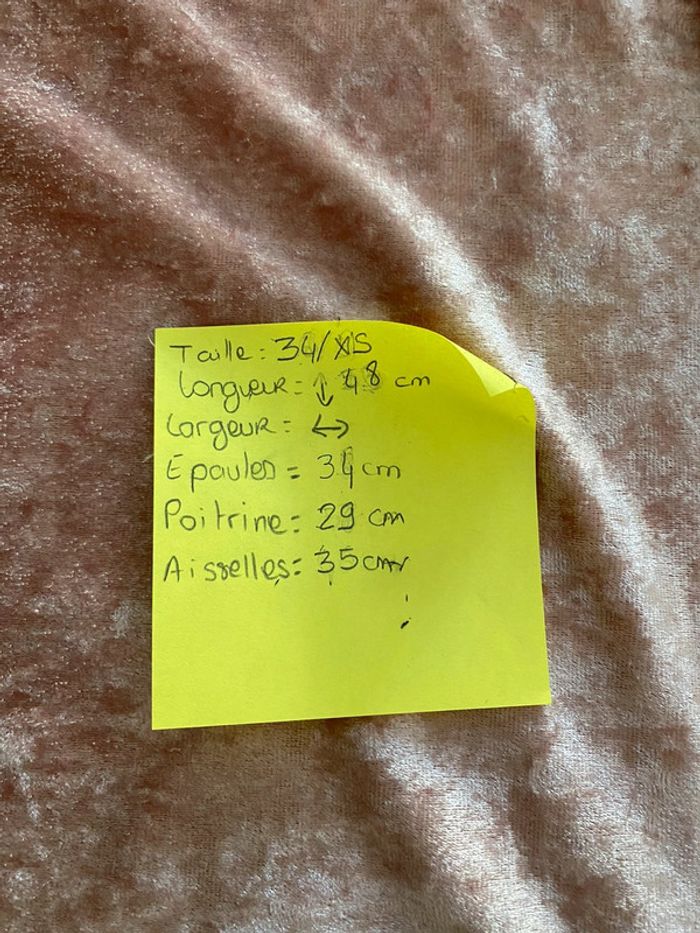 Taille : 34/XS
Longueur = ↕ 48 cm
Largeur = ↔
Epaules = 34 cm
Poitrine = 29 cm
Aisselles = 35 cm